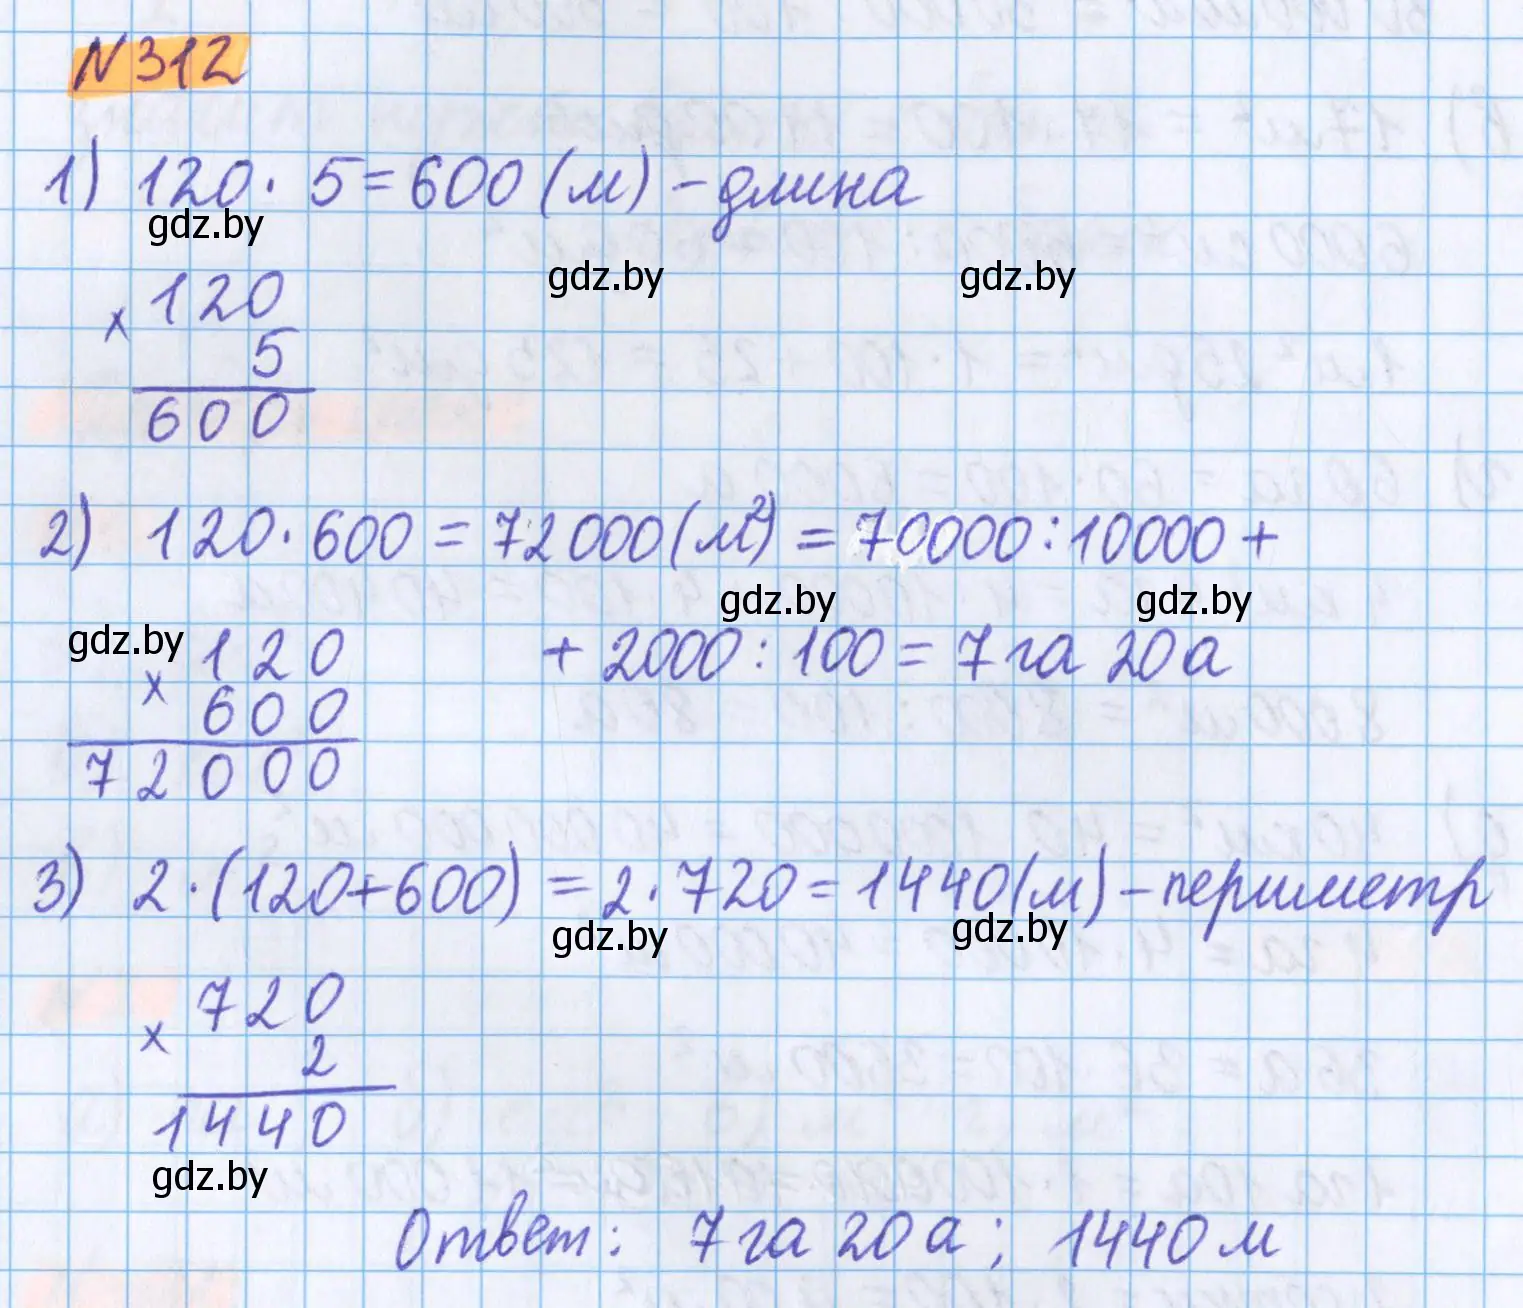 N312
1) 120 · 5 = 600 (м) - длина
gdz.by
gdz.by gdz.by
× 120
5
600
2) 120 · 600 = 72000 (м²) = 70000 : 10000 +
gdz.by gdz.by
+ 2000 : 100 = 7 га 20 а
gdz.by
× 120
600
72000
3) 2 · (120+600) = 2 · 720 = 1440 (м) - периметр
gdz.by gdz.by
× 720
2
1440
gdz.by
Ответ: 7 га 20 а; 1440 м